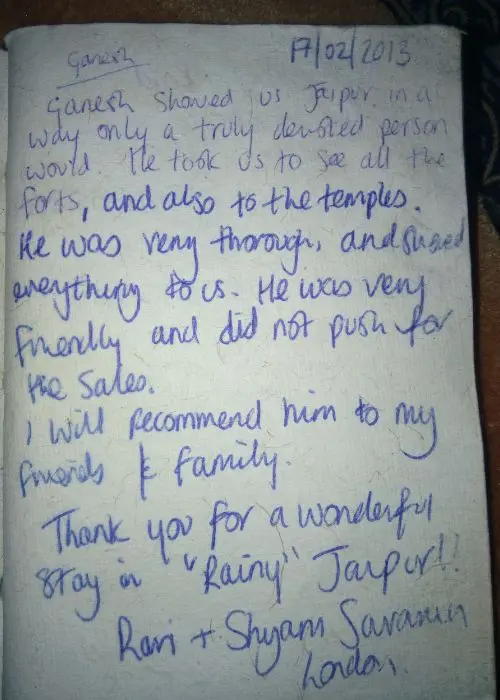 Ganesh
17/02/2013
Ganesh showed us Jaipur in a
way only a truly devoted person
would. He took us to see all the
forts, and also to the temples.
He was very thorough, and
everything to us. He was very
friendly and did not push for
the sales.
I will recommend him to my
friends & family.
Thank you for a wonderful
stay in "Rainy" Jaipur!!
Ravi + Shyam
London.